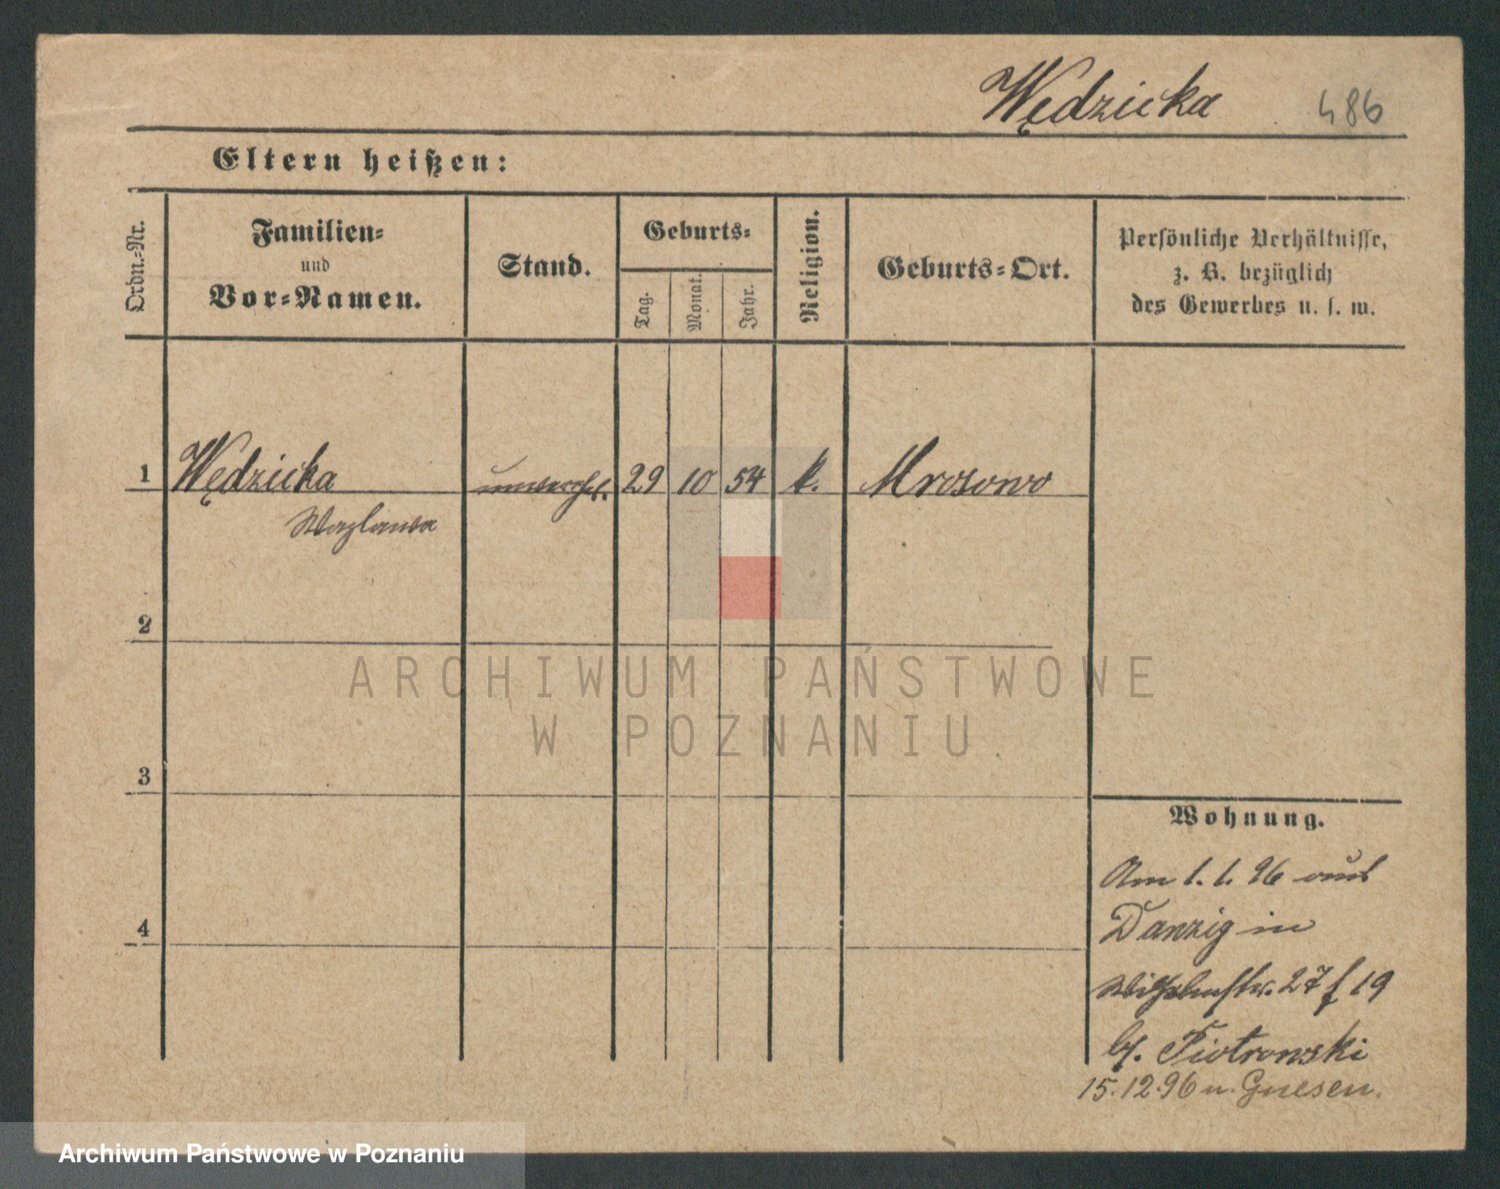 Wędzicka 486
Eltern heißen:
Ordn.-Nr.
Familien-
und
Vor-Namen.
Stand.
Geburts-
Tag.
Monat.
Jahr.
Religion.
Geburts-Ort.
Persönliche Verhältnisse,
z. B. bezüglich
des Gewerbes u. s. w.
1 Wędzicka unverehel. 29 10 54 k. Mrosowo
Wazlawa
2
3
4
Wohnung.
Am 1. 1. 96 aus
Danzig in
Wilhelmstr. 27 f 19
bei Piotrowski
15.12.96 n. Gnesen.
ARCHIWUM PAŃSTWOWE
W POZNANIU
Archiwum Państwowe w Poznaniu